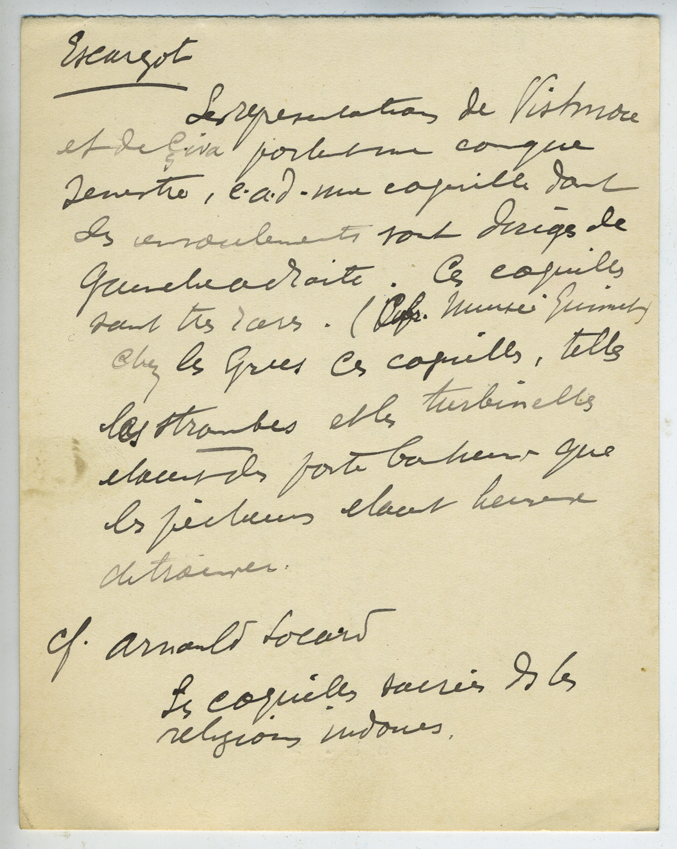 Escargot
Les representations de Vishnou
et de Çiva portent une conque
senestre, c.a.d. une coquille dont
les enroulements sont dirigés de
Gauche a droite. Ces coquilles
sont tres rares. (Cfr. Musée Guimet)
Chez les Grecs ces coquilles, telles
les strombes et les turbinelles
etaient des porte bonheur que
les pêcheurs etaient heureux
de trouver.
cf. Arnauld Locard
Les coquilles sacrées ds les
religions indoues.